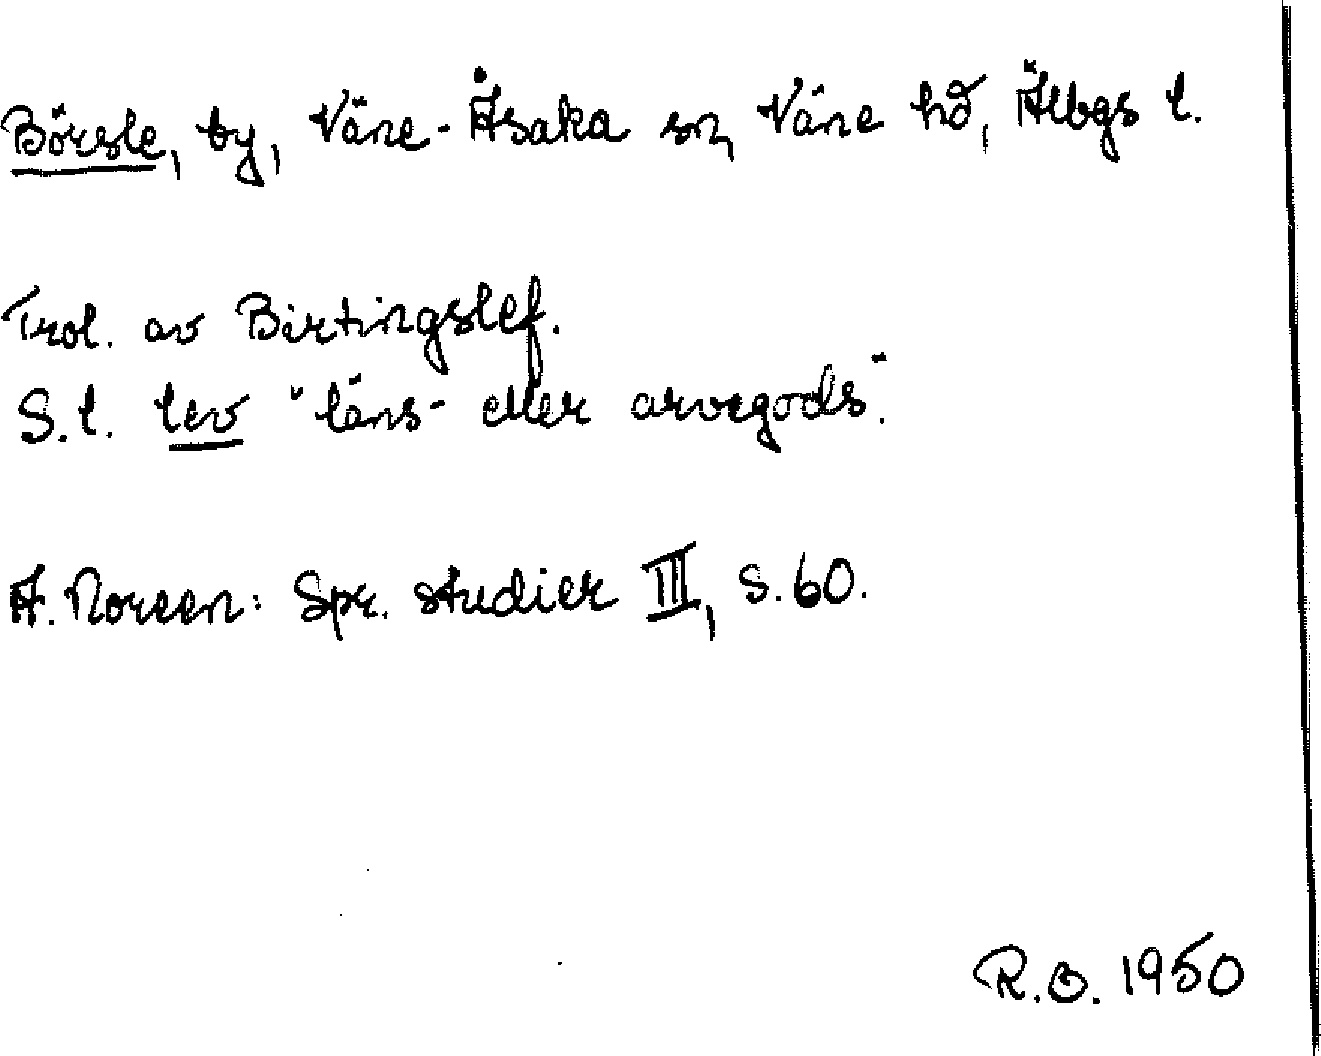 Börsle, by, Väne-Åsaka sn, Väne hd, Älbgs l.
Trol. av Birtingslef.
S.l. lev "läns- eller arvegods".
A. Noreen: Spr. studier III, s. 60.
R.O. 1950